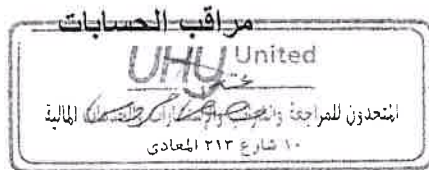 مراقب الحسابات
UHY United
المتحدون للمراجعة والضرائب والإستشارات المالية
١٠ شارع ٢١٣ المعادى